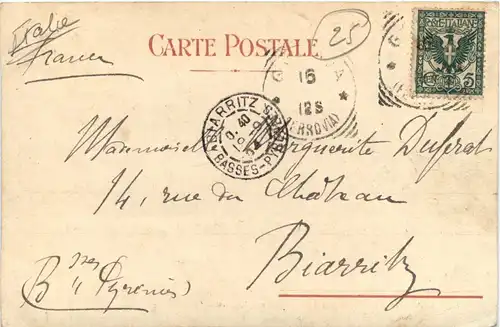 Italie
France
CARTE POSTALE
25
POSTE ITALIANE
5
16
12 S
(FERROVIA)
BIARRITZ
BASSES-PYRÉNÉES
Mademoiselle Marguerite Duferat
14, rue du Château
Biarritz
(Bsses Pyrénées)